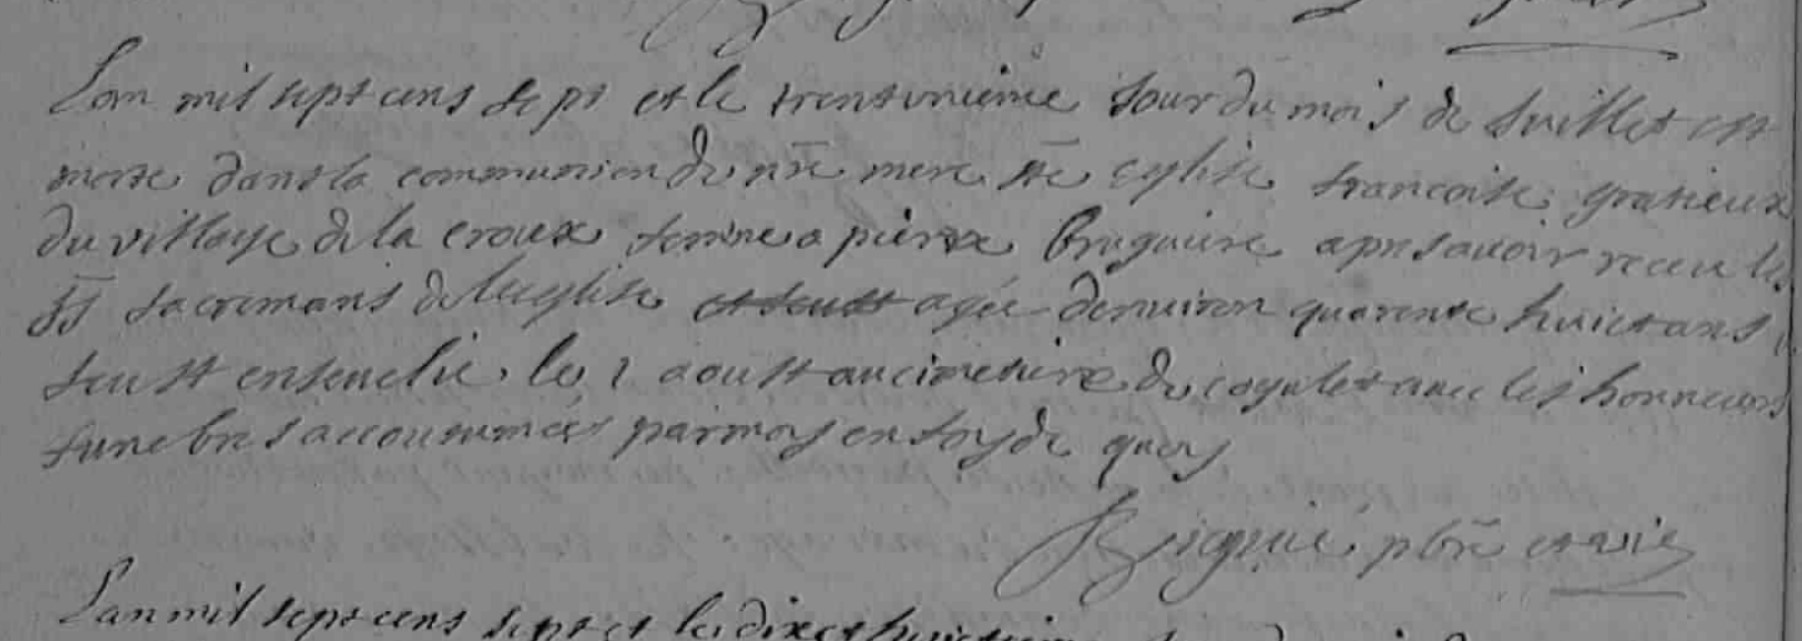 Lan mil sept cens sept et le trentunieme Jour du mois de Juillet est
morte dans la communion de nre mere ste eglise francoise gratieux
du village de la croux femme a pierre brugiere apres avoir receu les
SS sacremans de leglise et feust agée denuiron quarente huict ans
feust enseuelie le 1 aoust au cimetiere du coyulet auec les honneurs
funebres accoutumées par moy en foy de quoy
pbre et vic
Lan mil sept cens sept et le dix et huictieme